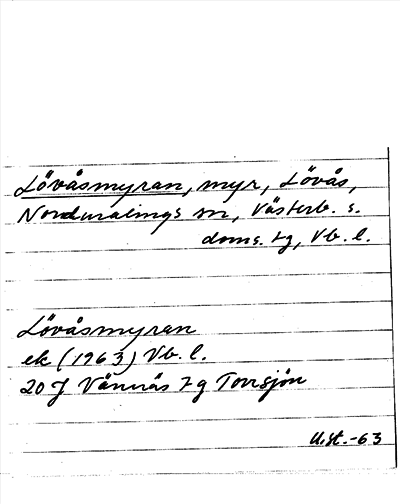 Lövåsmyran, myr, Lövås,
Nordmalings sn, Västerb. s.
doms. tg, Vb. l.
Lövåsmyran
ek (1963) Vb. l.
20 J Vännäs tg Torrsjön
U.st.-63